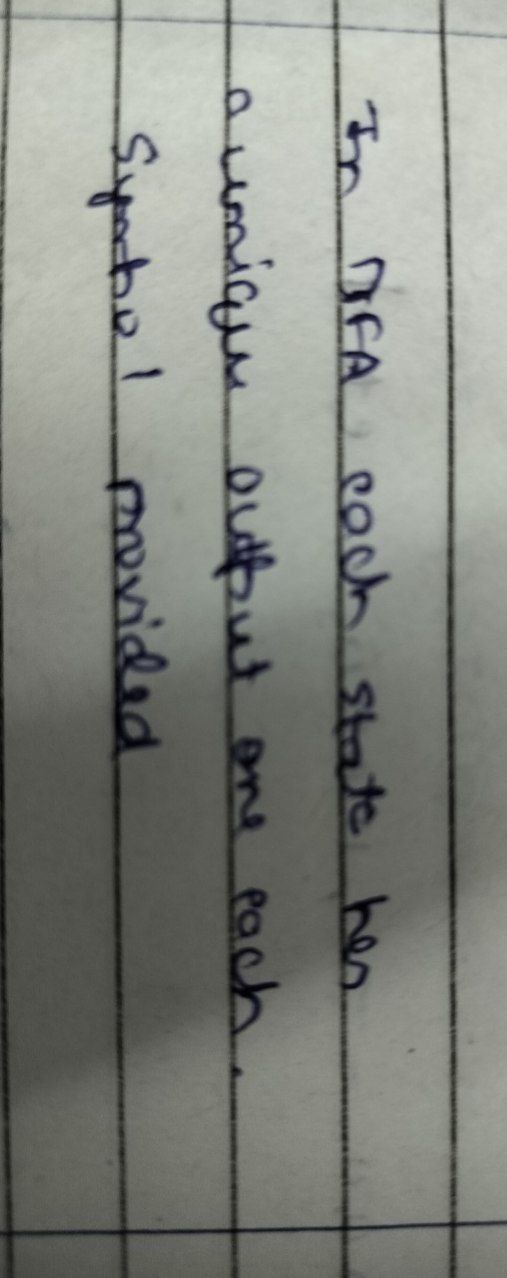 In DFA, each state has
a unique output one each.
Symbol provided